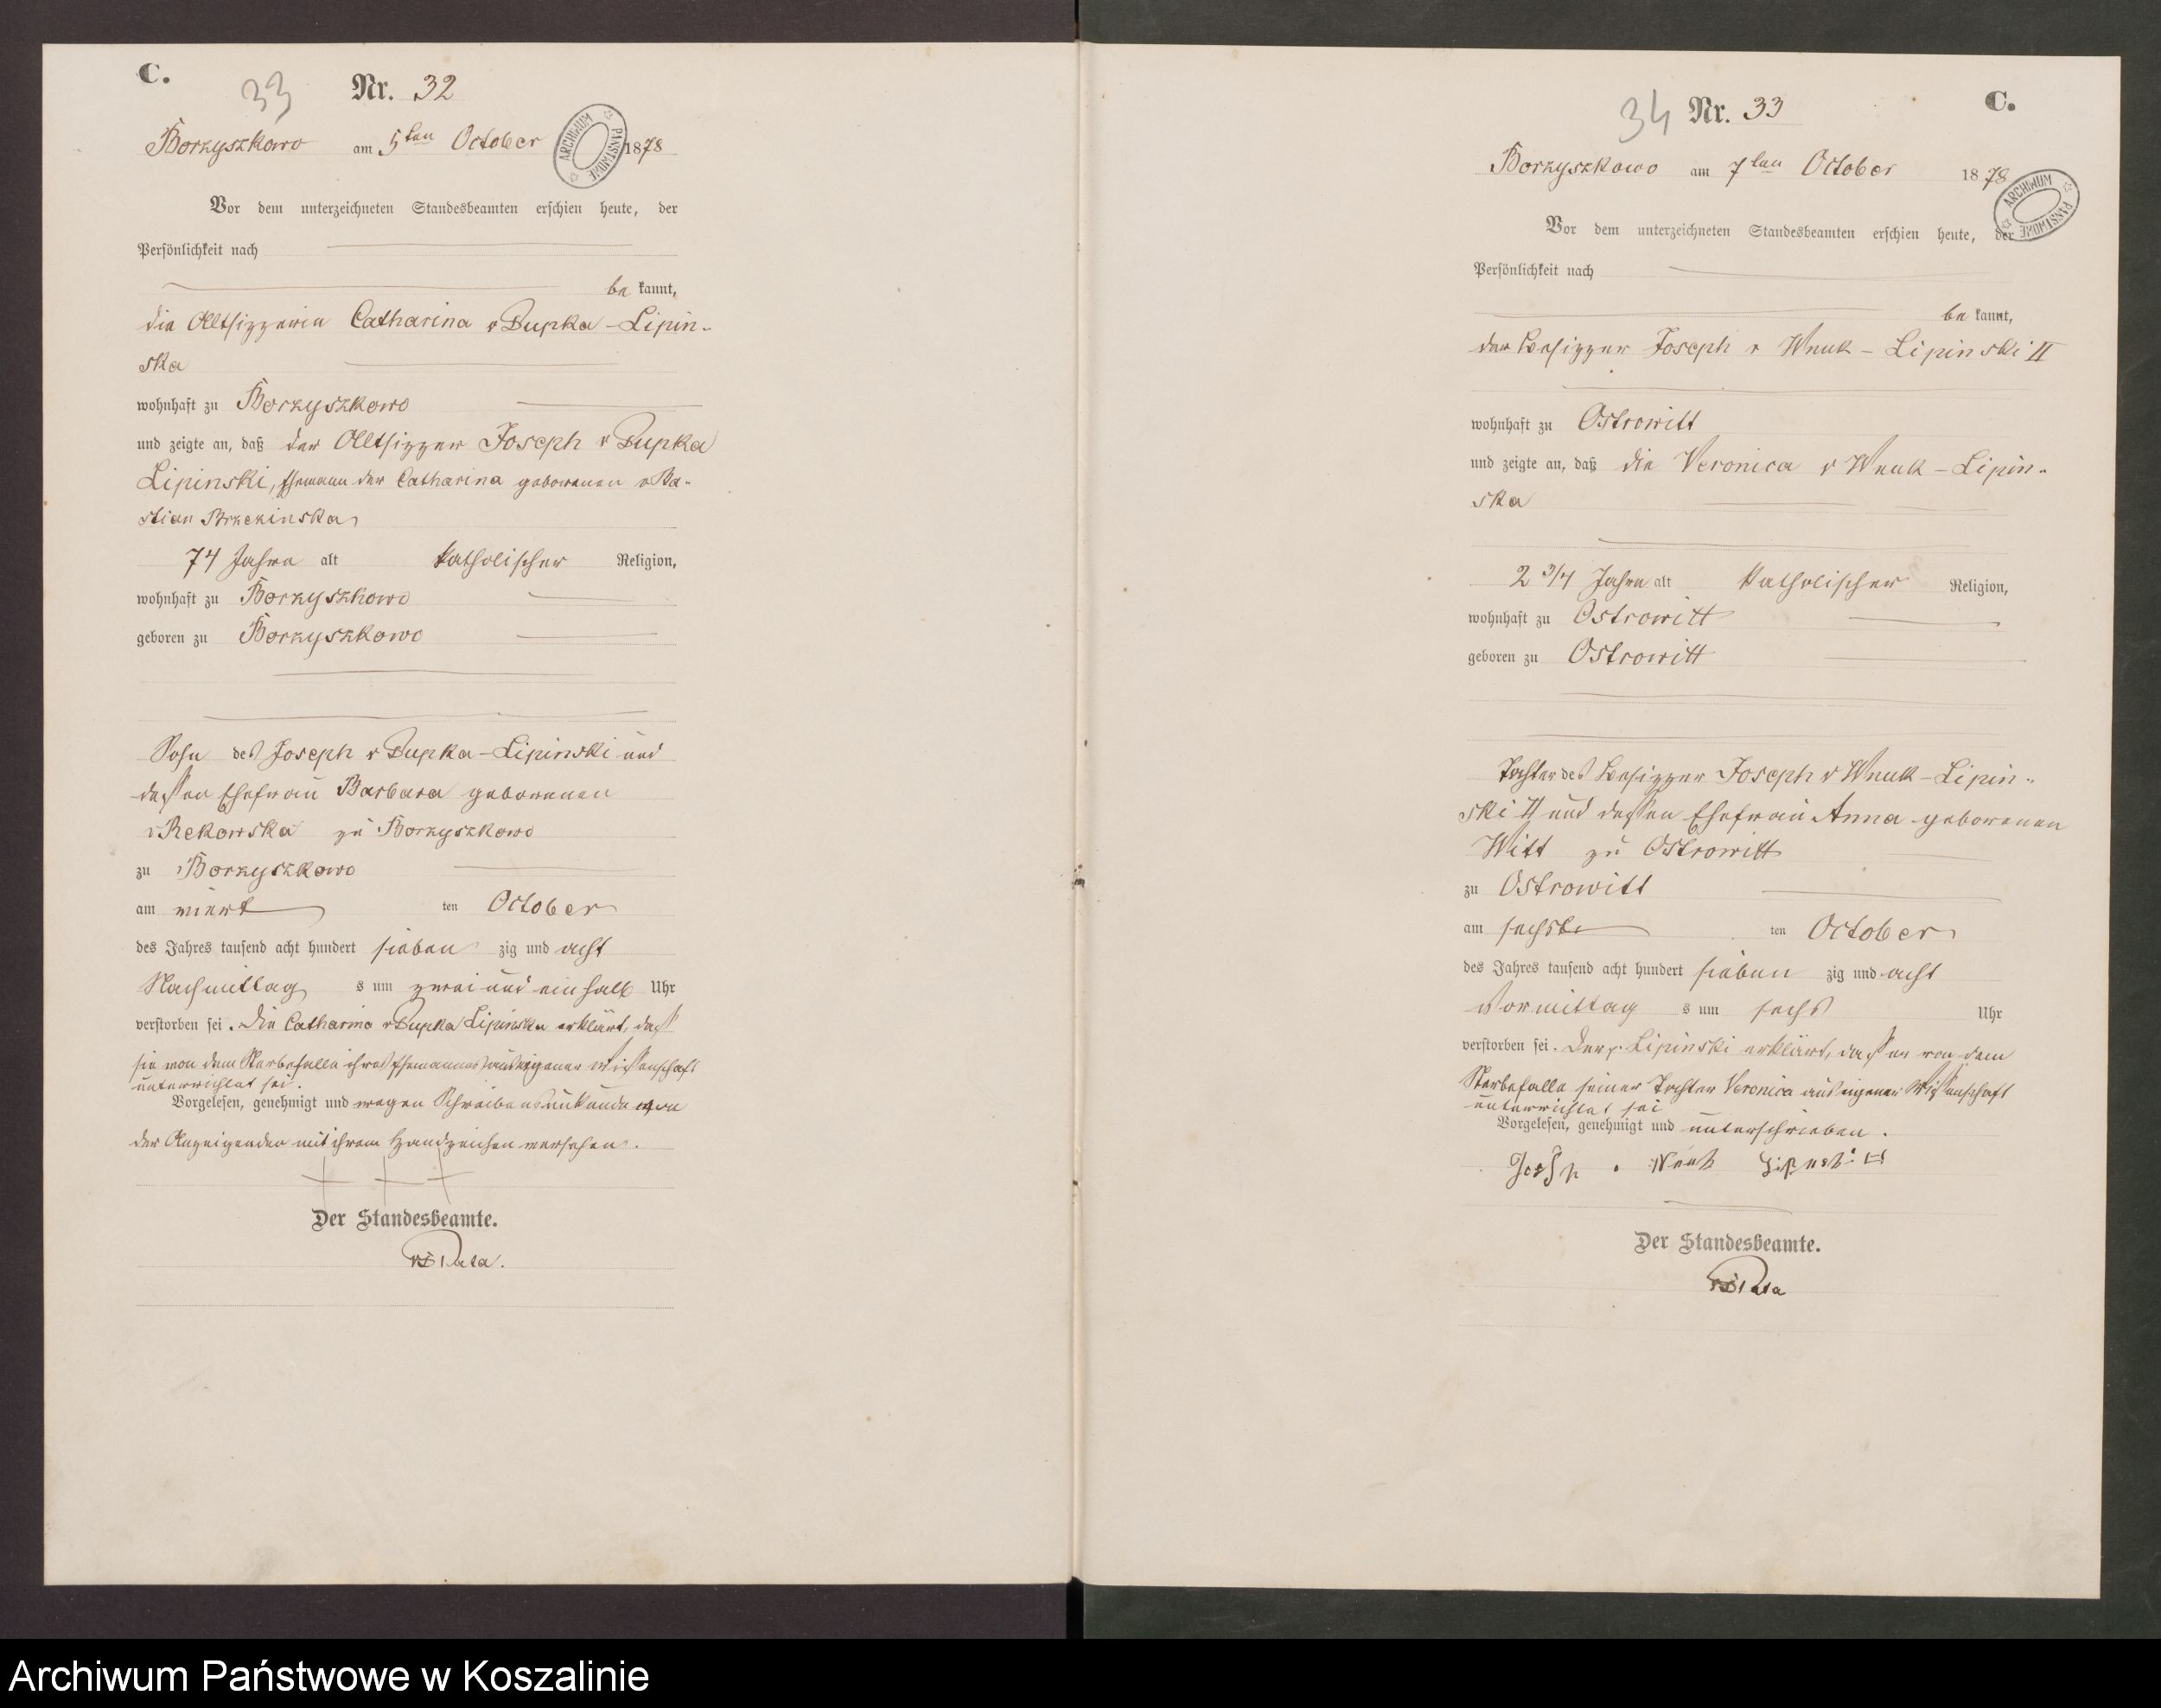 C.
33 Nr. 32
Borzyszkowo am 5ten October 1878
ARCHIWUM PAŃSTWOWE
Vor dem unterzeichneten Standesbeamten erschien heute, der
Persönlichkeit nach
be kannt,
die Altsitzerin Catharina v Dupka-Lipin-
ska
wohnhaft zu Borzyszkowo
und zeigte an, daß der Altsitzer Joseph v Dupka
Lipinski, Ehemann der Catharina geborenen v Ba-
stian Brzezinska,
74 Jahre alt katholischer Religion,
wohnhaft zu Borzyszkowo
geboren zu Borzyszkowo
Sohn des Joseph v Dupka-Lipinski und
dessen Ehefrau Barbara geborenen
v Rekowska zu Borzyszkowo
zu Borzyszkowo
am viert ten October
des Jahres tausend acht hundert sieben zig und acht
Nachmittag s um zwei und ein halb Uhr
verstorben sei. Die Catharina v Dupka Lipinska erklärt, daß
sie von dem Sterbefalle ihres Ehemannes aus eigener Wissenschaft
unterrichtet sei.
Vorgelesen, genehmigt und wegen Schreibensunkunde von
der Anzeigenden mit ihrem Handzeichen versehen.
+ + +
Der Standesbeamte.
C.
34 Nr. 33
Borzyszkowo am 7ten October 1878
ARCHIWUM PAŃSTWOWE
Vor dem unterzeichneten Standesbeamten erschien heute, der
Persönlichkeit nach
be kannt,
der Besitzer Joseph v Wnuk-Lipinski II
wohnhaft zu Ostrowitt
und zeigte an, daß die Veronica v Wnuk-Lipin-
ska
2 3/4 Jahre alt katholischer Religion,
wohnhaft zu Ostrowitt
geboren zu Ostrowitt
Tochter des Besitzer Joseph v Wnuk-Lipin-
ski II und dessen Ehefrau Anna geborenen
Witt zu Ostrowitt
zu Ostrowitt
am sechste ten October
des Jahres tausend acht hundert sieben zig und acht
Vormittag s um sechs Uhr
verstorben sei. Der p. Lipinski erklärt, daß er von dem
Sterbefalle seiner Tochter Veronica aus eigener Wissenschaft
unterrichtet sei
Vorgelesen, genehmigt und unterschrieben.
Der Standesbeamte.
Archiwum Państwowe w Koszalinie